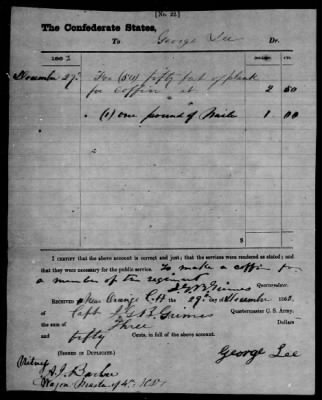 [No. 22.]
The Confederate States,
To George Lee Dr.
186 2 DOLLARS. CTS.
November 29th For (50) fifty feet of plank
for coffin at 2 50
" (1) one pound of Nails 1 00
$
I CERTIFY that the above account is correct and just; that the services were rendered as stated; and
that they were necessary for the public service. To make a coffin for
a member of the regiment
Quartermaster.
RECEIVED at Near Orange C.H. the 29th day of November 1862,
of Capt Grimes Quartermaster C. S. Army,
the sum of Three Dollars
and fifty Cents, in full of the above account.
(SIGNED IN DUPLICATE.)
George Lee
Witness
Wagon Master 4th